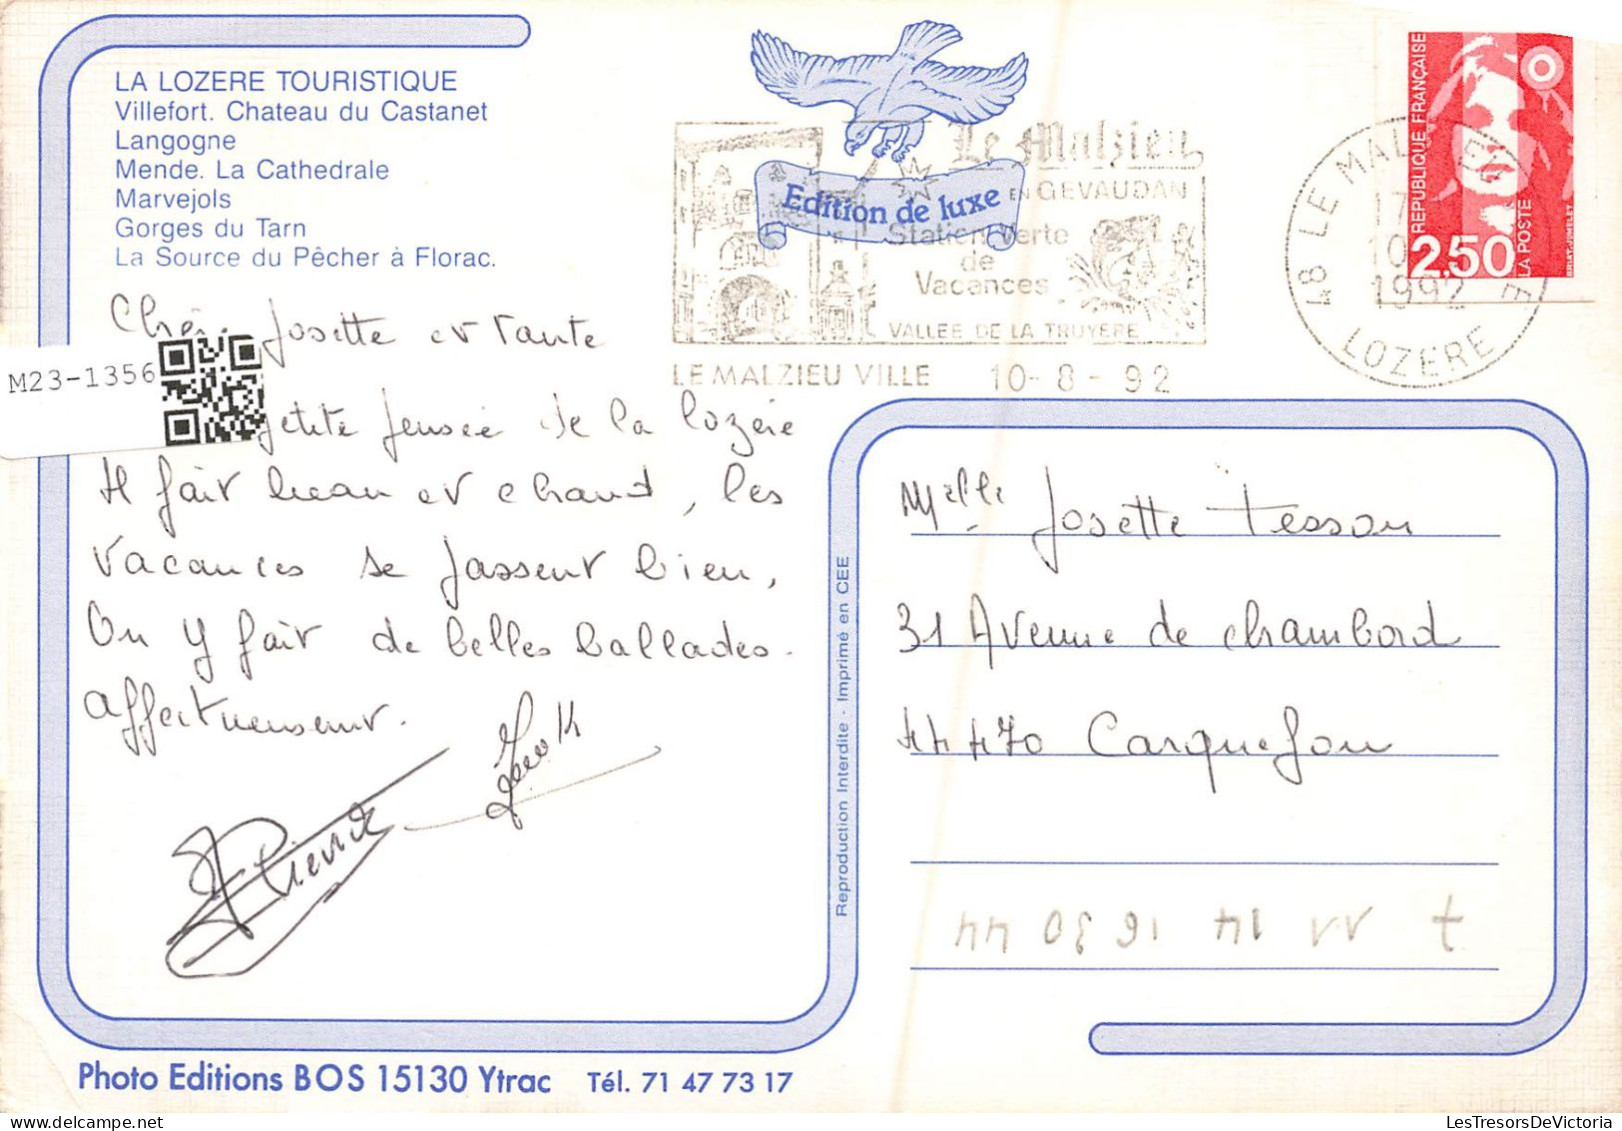 LA LOZERE TOURISTIQUE
Villefort. Chateau du Castanet
Langogne
Mende. La Cathedrale
Marvejols
Gorges du Tarn
La Source du Pêcher à Florac.
Edition de luxe
Le Malzieu
EN GEVAUDAN
Station Verte
de
Vacances
VALLEE DE LA TRUYERE
LE MALZIEU VILLE 10-8-92
REPUBLIQUE FRANÇAISE
2,50
LA POSTE
48 LE MALZIEU
17
10
1992
LOZERE
M23-1356
Josette et tante
petite pensée de la lozère
Il fait beau et chaud, les
vacances se passent bien,
On y fait de belles ballades.
affectueusement.
Pierre
Melle Josette Tesson
31 Avenue de chambord
44470 Carquefou
Reproduction Interdite - Imprimé en CEE
Photo Editions BOS 15130 Ytrac Tél. 71 47 73 17
LesTresorsDeVictoria